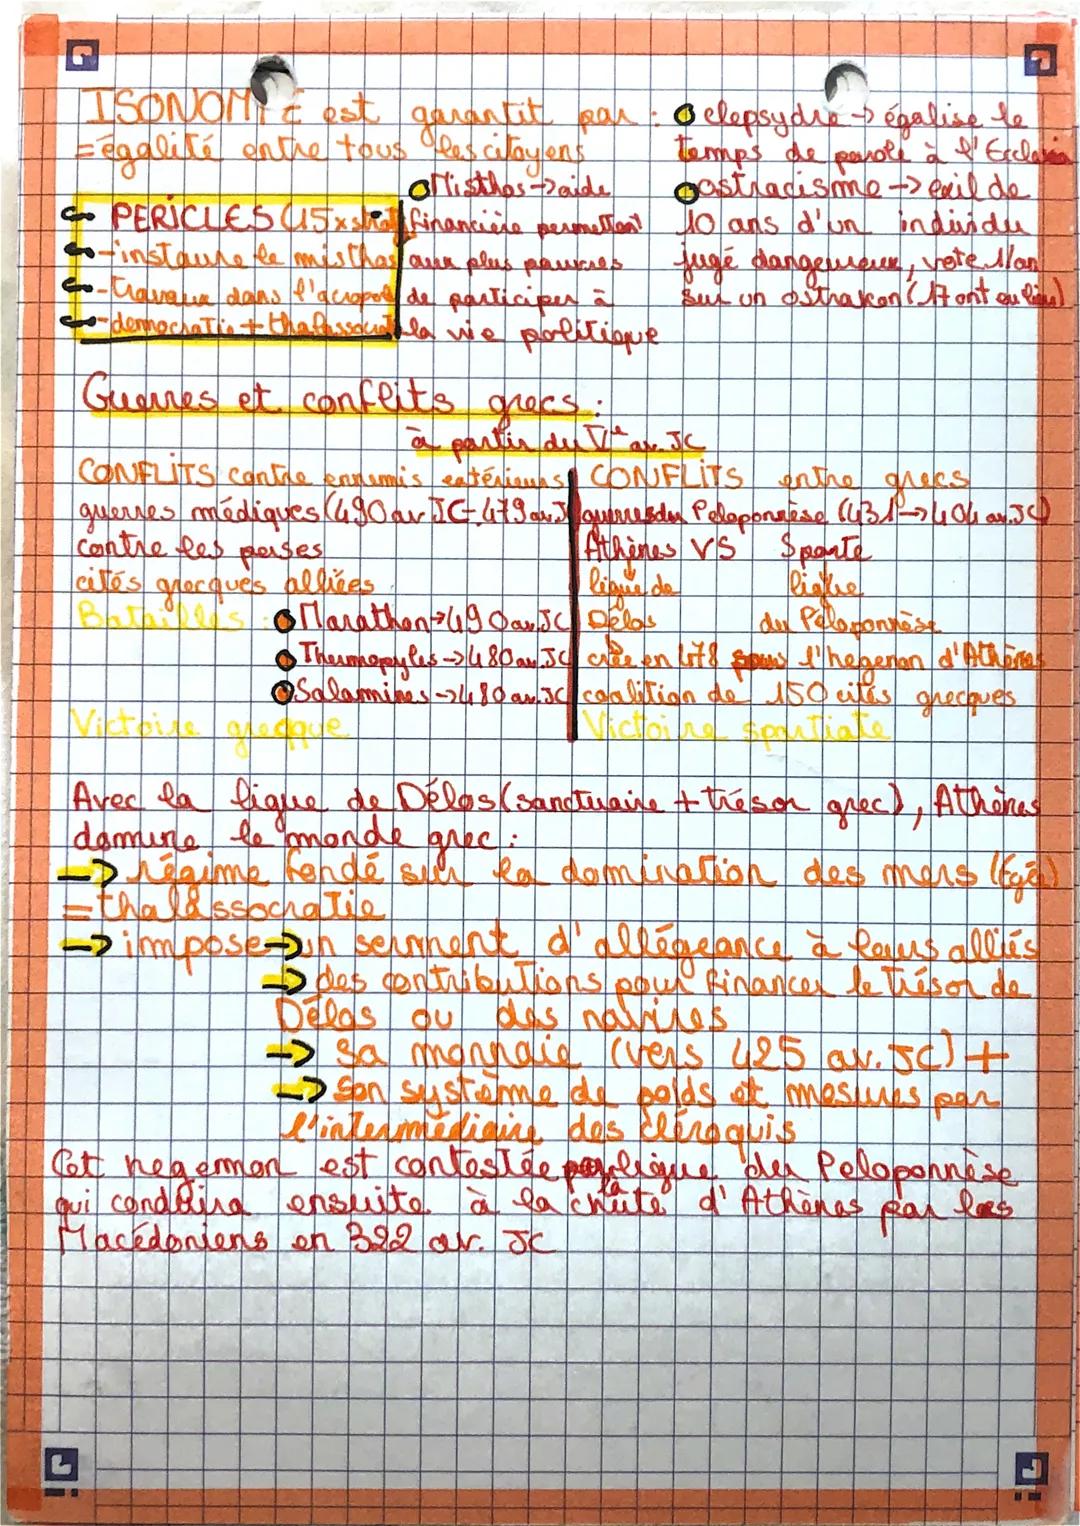 ISONOMIE est garantit par :
= égalité entre tous les citoyens
clepsydre → égalise le
temps de parole à l'Ecclesia
ostracisme → exil de
10 ans d'un individu
jugé dangeureux, vote 1/an
sur un ostrakon (17 ont eu lieu)
Misthos → aide
financière permettant
aux plus pauvres
de participer à
la vie politique
PERICLES (15 x strat
- instaure le misthos
- travaux dans l'acropol
- democratie + thalassocrat
Guerres et conflits grecs :
à partir du Ve av. JC
CONFLITS contre ennemis extérieurs
guerres médiques (490 av JC - 479 av. J
contre les perses
cités grecques alliées
Batailles : Marathon → 490 av. JC
Thermopyles → 480 av. JC
Salamines → 480 av. JC
Victoire grecque
CONFLITS entre grecs
guerres du Peloponnèse (431 → 404 av. JC)
Athènes VS Sparte
ligue de ligue
Délos du Péloponnèse
crée en 478 sous l'hegemon d'Athènes
coalition de 150 cités grecques
Victoire spartiate
Avec la ligue de Délos (sanctuaire + trésor grec), Athènes
domine le monde grec :
→ régime fondé sur la domination des mers (Egée)
= thalassocratie
→ impose → un serment d'allégeance à leurs alliés
→ des contributions pour financer le trésor de
Délos ou des navires
→ sa monnaie (vers 425 av. JC) +
→ son système de poids et mesures par
l'intermédiaire des cléroquis
Cet hegemon est contestée par ligue du Peloponnèse
qui conduira ensuite à la chute d'Athènes par les
Macédoniens en 322 av. JC